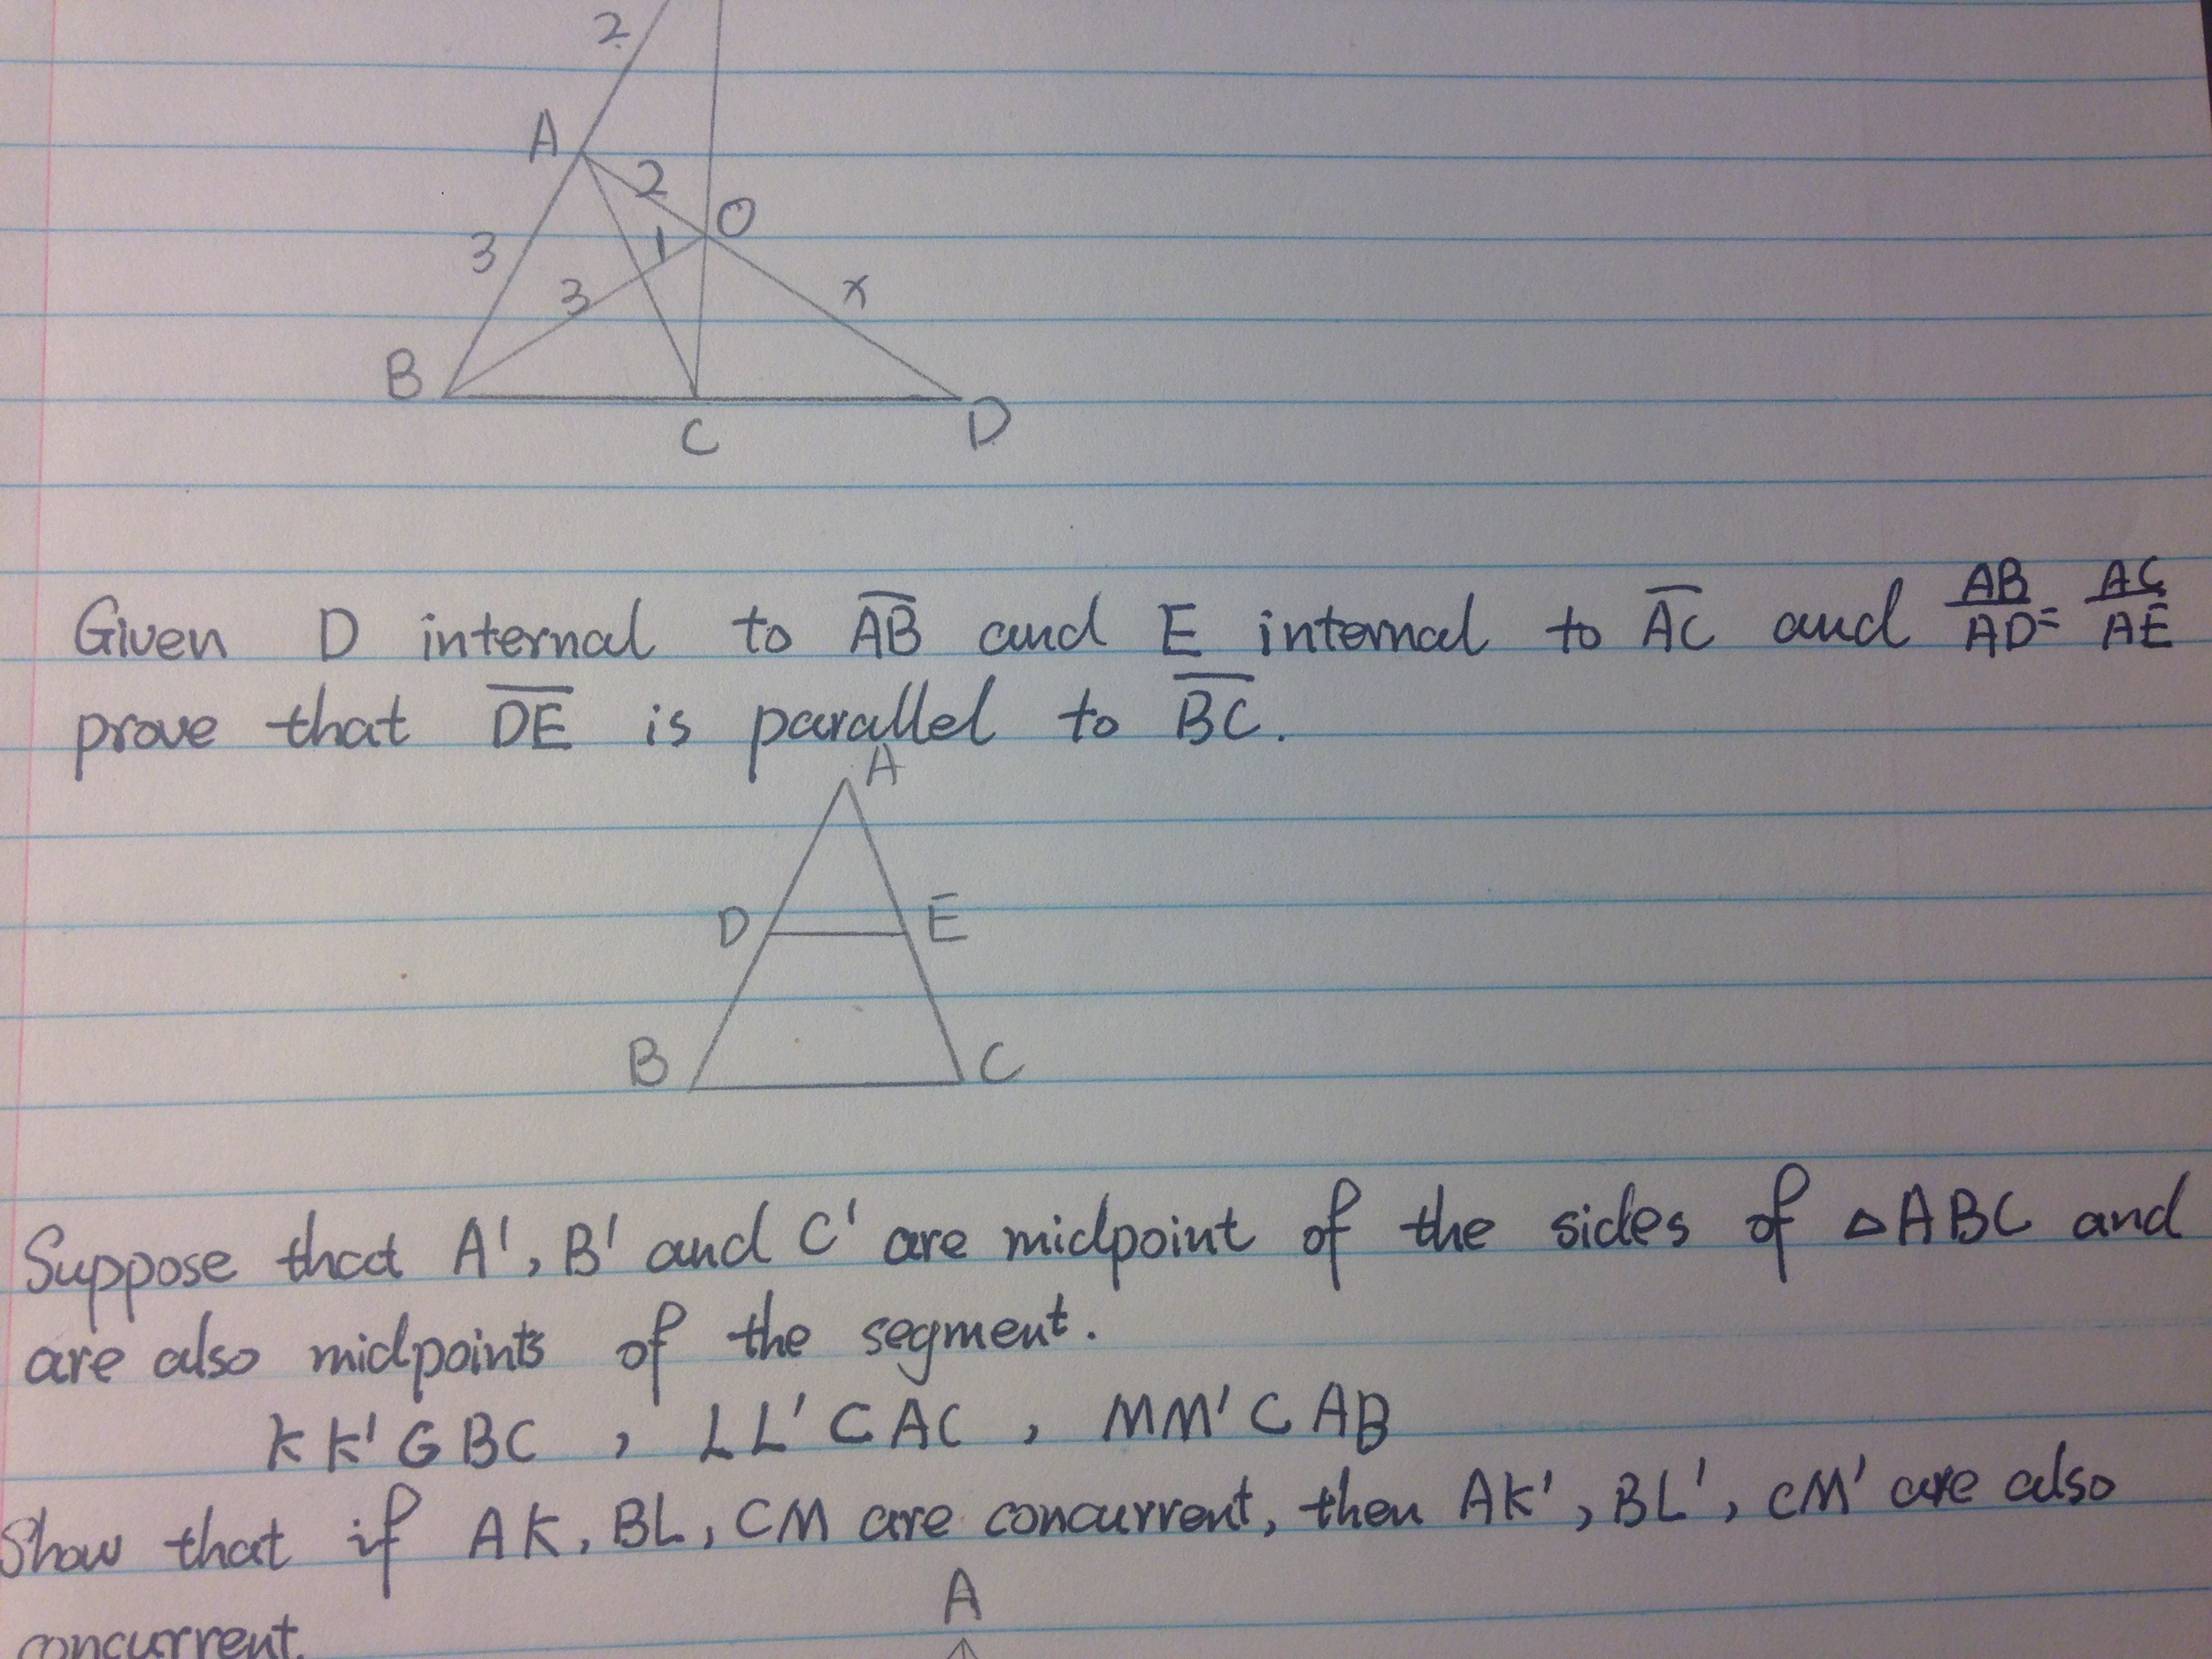 2
A
2
O
3
1
3
x
B
C
D
Given D internal to A̅B̅ and E internal to A̅C̅ and AB/AD = AC/AE
prove that D̅E̅ is parallel to B̅C̅.
A
D E
B C
Suppose that A', B' and C' are midpoint of the sides of △ABC and
are also midpoints of the segment.
KK' G BC , LL' C AC , MM' C AB
Show that if AK, BL, CM are concurrent, then AK', BL', CM' are also
concurrent.
A